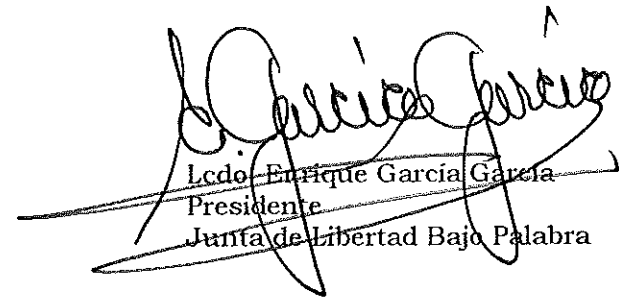 E. García García
Lcdo. Enrique García García
Presidente
Junta de Libertad Bajo Palabra